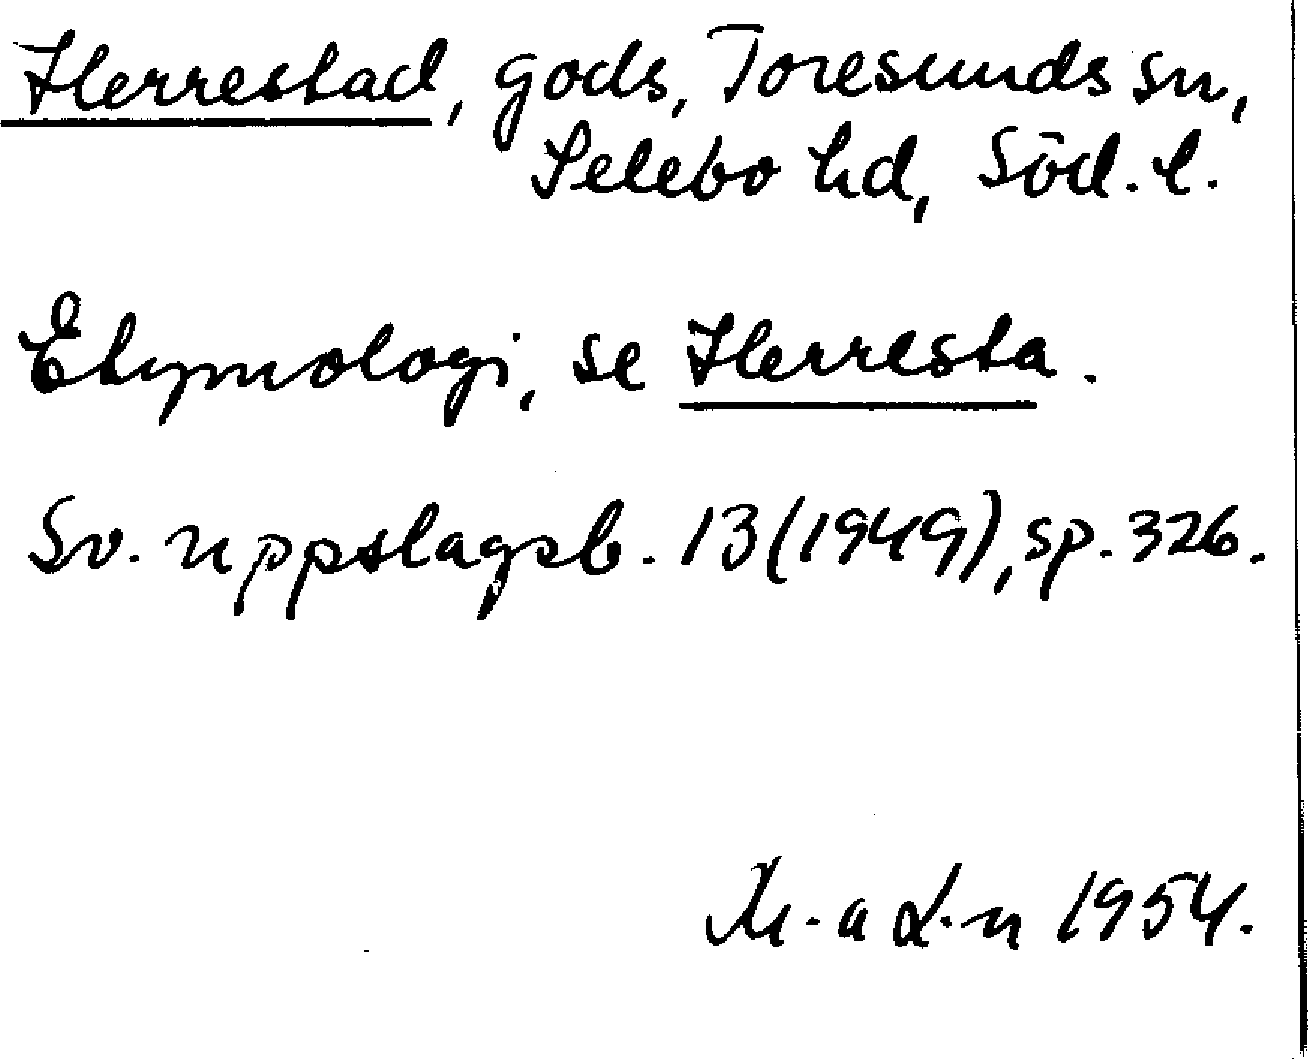 Herrestad, gods, Toresunds sn,
Selebo hd, Söd. l.
Etymologi, se Herresta.
Sv. uppslagsb. 13 (1949), sp. 326.
M-a L-n 1954.